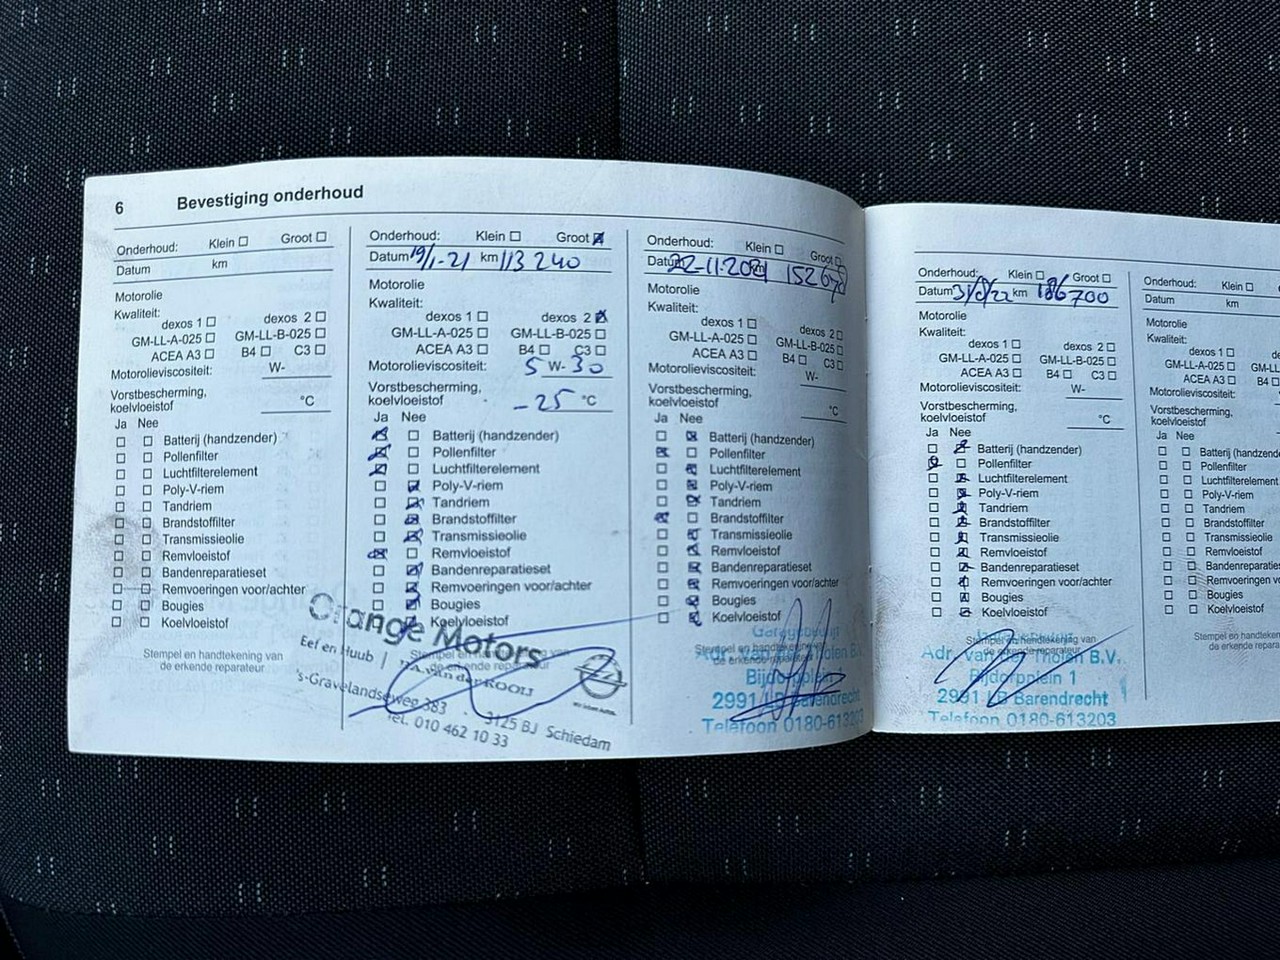 6 Bevestiging onderhoud
Onderhoud: Klein Groot
Datum km
Motorolie
Kwaliteit:
dexos 1 dexos 2
GM-LL-A-025 GM-LL-B-025
ACEA A3 B4 C3
Motorolieviscositeit: W-
Vorstbescherming,
koelvloeistof °C
Ja Nee
Batterij (handzender)
Pollenfilter
Luchtfilterelement
Poly-V-riem
Tandriem
Brandstoffilter
Transmissieolie
Remvloeistof
Bandenreparatieset
Remvoeringen voor/achter
Bougies
Koelvloeistof
Stempel en handtekening van
de erkende reparateur
Onderhoud: Klein Groot
Datum 19/1-21 km 113 240
Motorolie
Kwaliteit:
dexos 1 dexos 2
GM-LL-A-025 GM-LL-B-025
ACEA A3 B4 C3
Motorolieviscositeit: 5 W- 30
Vorstbescherming,
koelvloeistof -25 °C
Ja Nee
Batterij (handzender)
Pollenfilter
Luchtfilterelement
Poly-V-riem
Tandriem
Brandstoffilter
Transmissieolie
Remvloeistof
Bandenreparatieset
Remvoeringen voor/achter
Bougies
Koelvloeistof
Stempel en handtekening van
de erkende reparateur
Orange Motors
Eef en Huub | v.d. KOOIJ
's-Gravelandseweg 383 - 3125 BJ Schiedam
Tel. 010 462 10 33
Onderhoud: Klein Groot
Datum 22-11-2021 km
Motorolie
Kwaliteit:
dexos 1 dexos 2
GM-LL-A-025 GM-LL-B-025
ACEA A3 B4 C3
Motorolieviscositeit: W-
Vorstbescherming,
koelvloeistof °C
Ja Nee
Batterij (handzender)
Pollenfilter
Luchtfilterelement
Poly-V-riem
Tandriem
Brandstoffilter
Transmissieolie
Remvloeistof
Bandenreparatieset
Remvoeringen voor/achter
Bougies
Koelvloeistof
Stempel en handtekening van
de erkende reparateur
Garagebedrijf
Adr. van der Tholen B.V.
Bijdorpplein
2991 LB Barendrecht
Telefoon 0180-613203
Onderhoud: Klein Groot
Datum km 186700
Motorolie
Kwaliteit:
dexos 1 dexos 2
GM-LL-A-025 GM-LL-B-025
ACEA A3 B4 C3
Motorolieviscositeit: W-
Vorstbescherming,
koelvloeistof °C
Ja Nee
Batterij (handzender)
Pollenfilter
Luchtfilterelement
Poly-V-riem
Tandriem
Brandstoffilter
Transmissieolie
Remvloeistof
Bandenreparatieset
Remvoeringen voor/achter
Bougies
Koelvloeistof
Stempel en handtekening van
de erkende reparateur
Adr. van der Tholen B.V.
Bijdorpplein 1
2991 LB Barendrecht
Telefoon 0180-613203
Onderhoud: Klein
Datum km
Motorolie
Kwaliteit:
dexos 1
GM-LL-A-025 GM-LL
ACEA A3 B4
Motorolieviscositeit:
Vorstbescherming,
koelvloeistof
Ja Nee
Batterij (handzende
Pollenfilter
Luchtfilterelement
Poly-V-riem
Tandriem
Brandstoffilter
Transmissieolie
Remvloeistof
Bandenreparaties
Remvoeringen vo
Bougies
Koelvloeistof
Stempel en handteken
de erkende repara